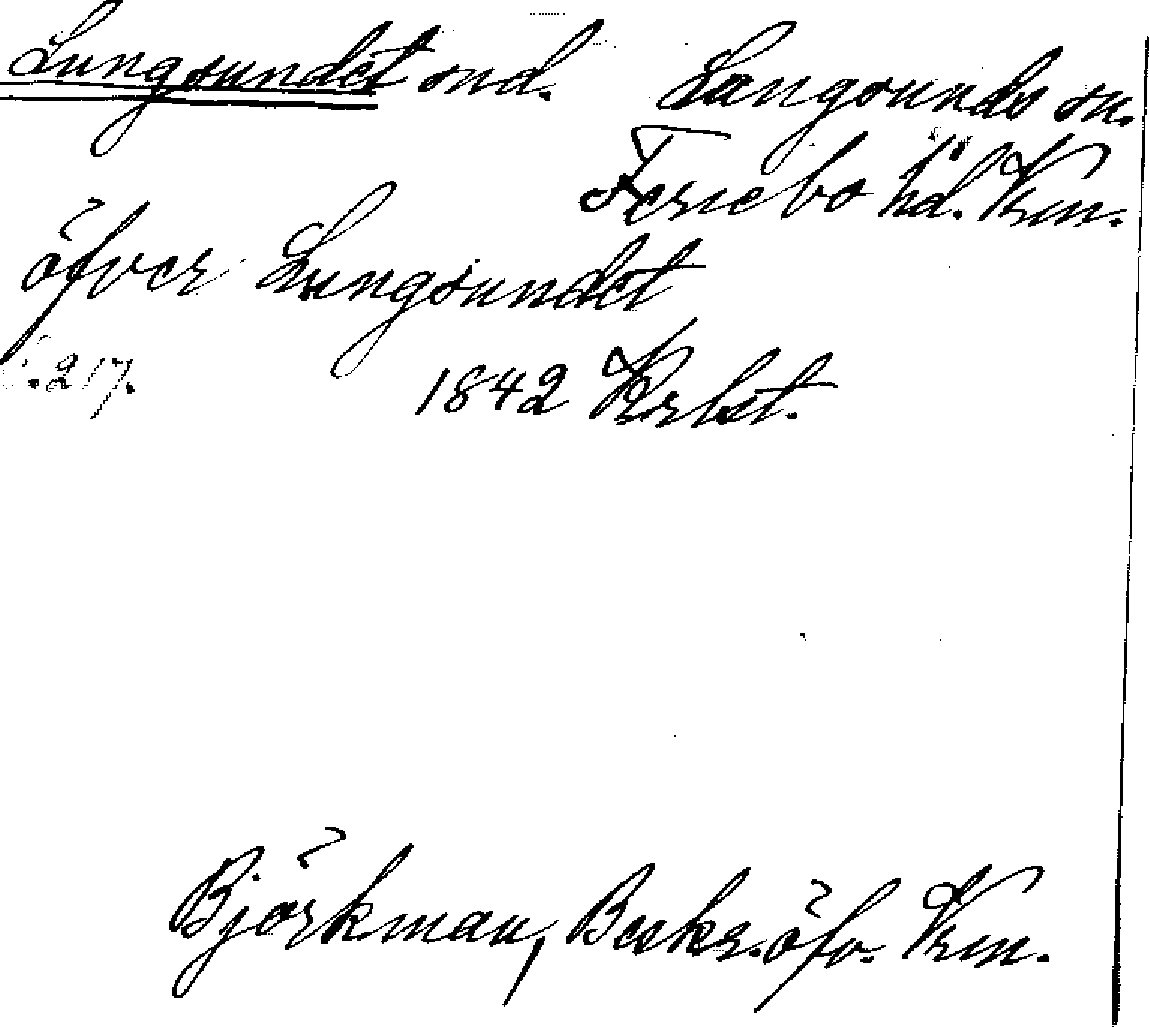 Lungsundet snd. Lungsunds sn.
Fernebo hd. Vrm.
öfver Lungsundet
s. 217. 1842 Vrbet.
Björkman, Beskr. öfv. Vrm.